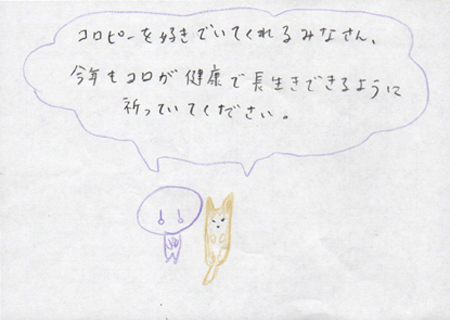 コロピーを好きでいてくれるみなさん、
今年もコロが健康で長生きできるように
祈っていてください。